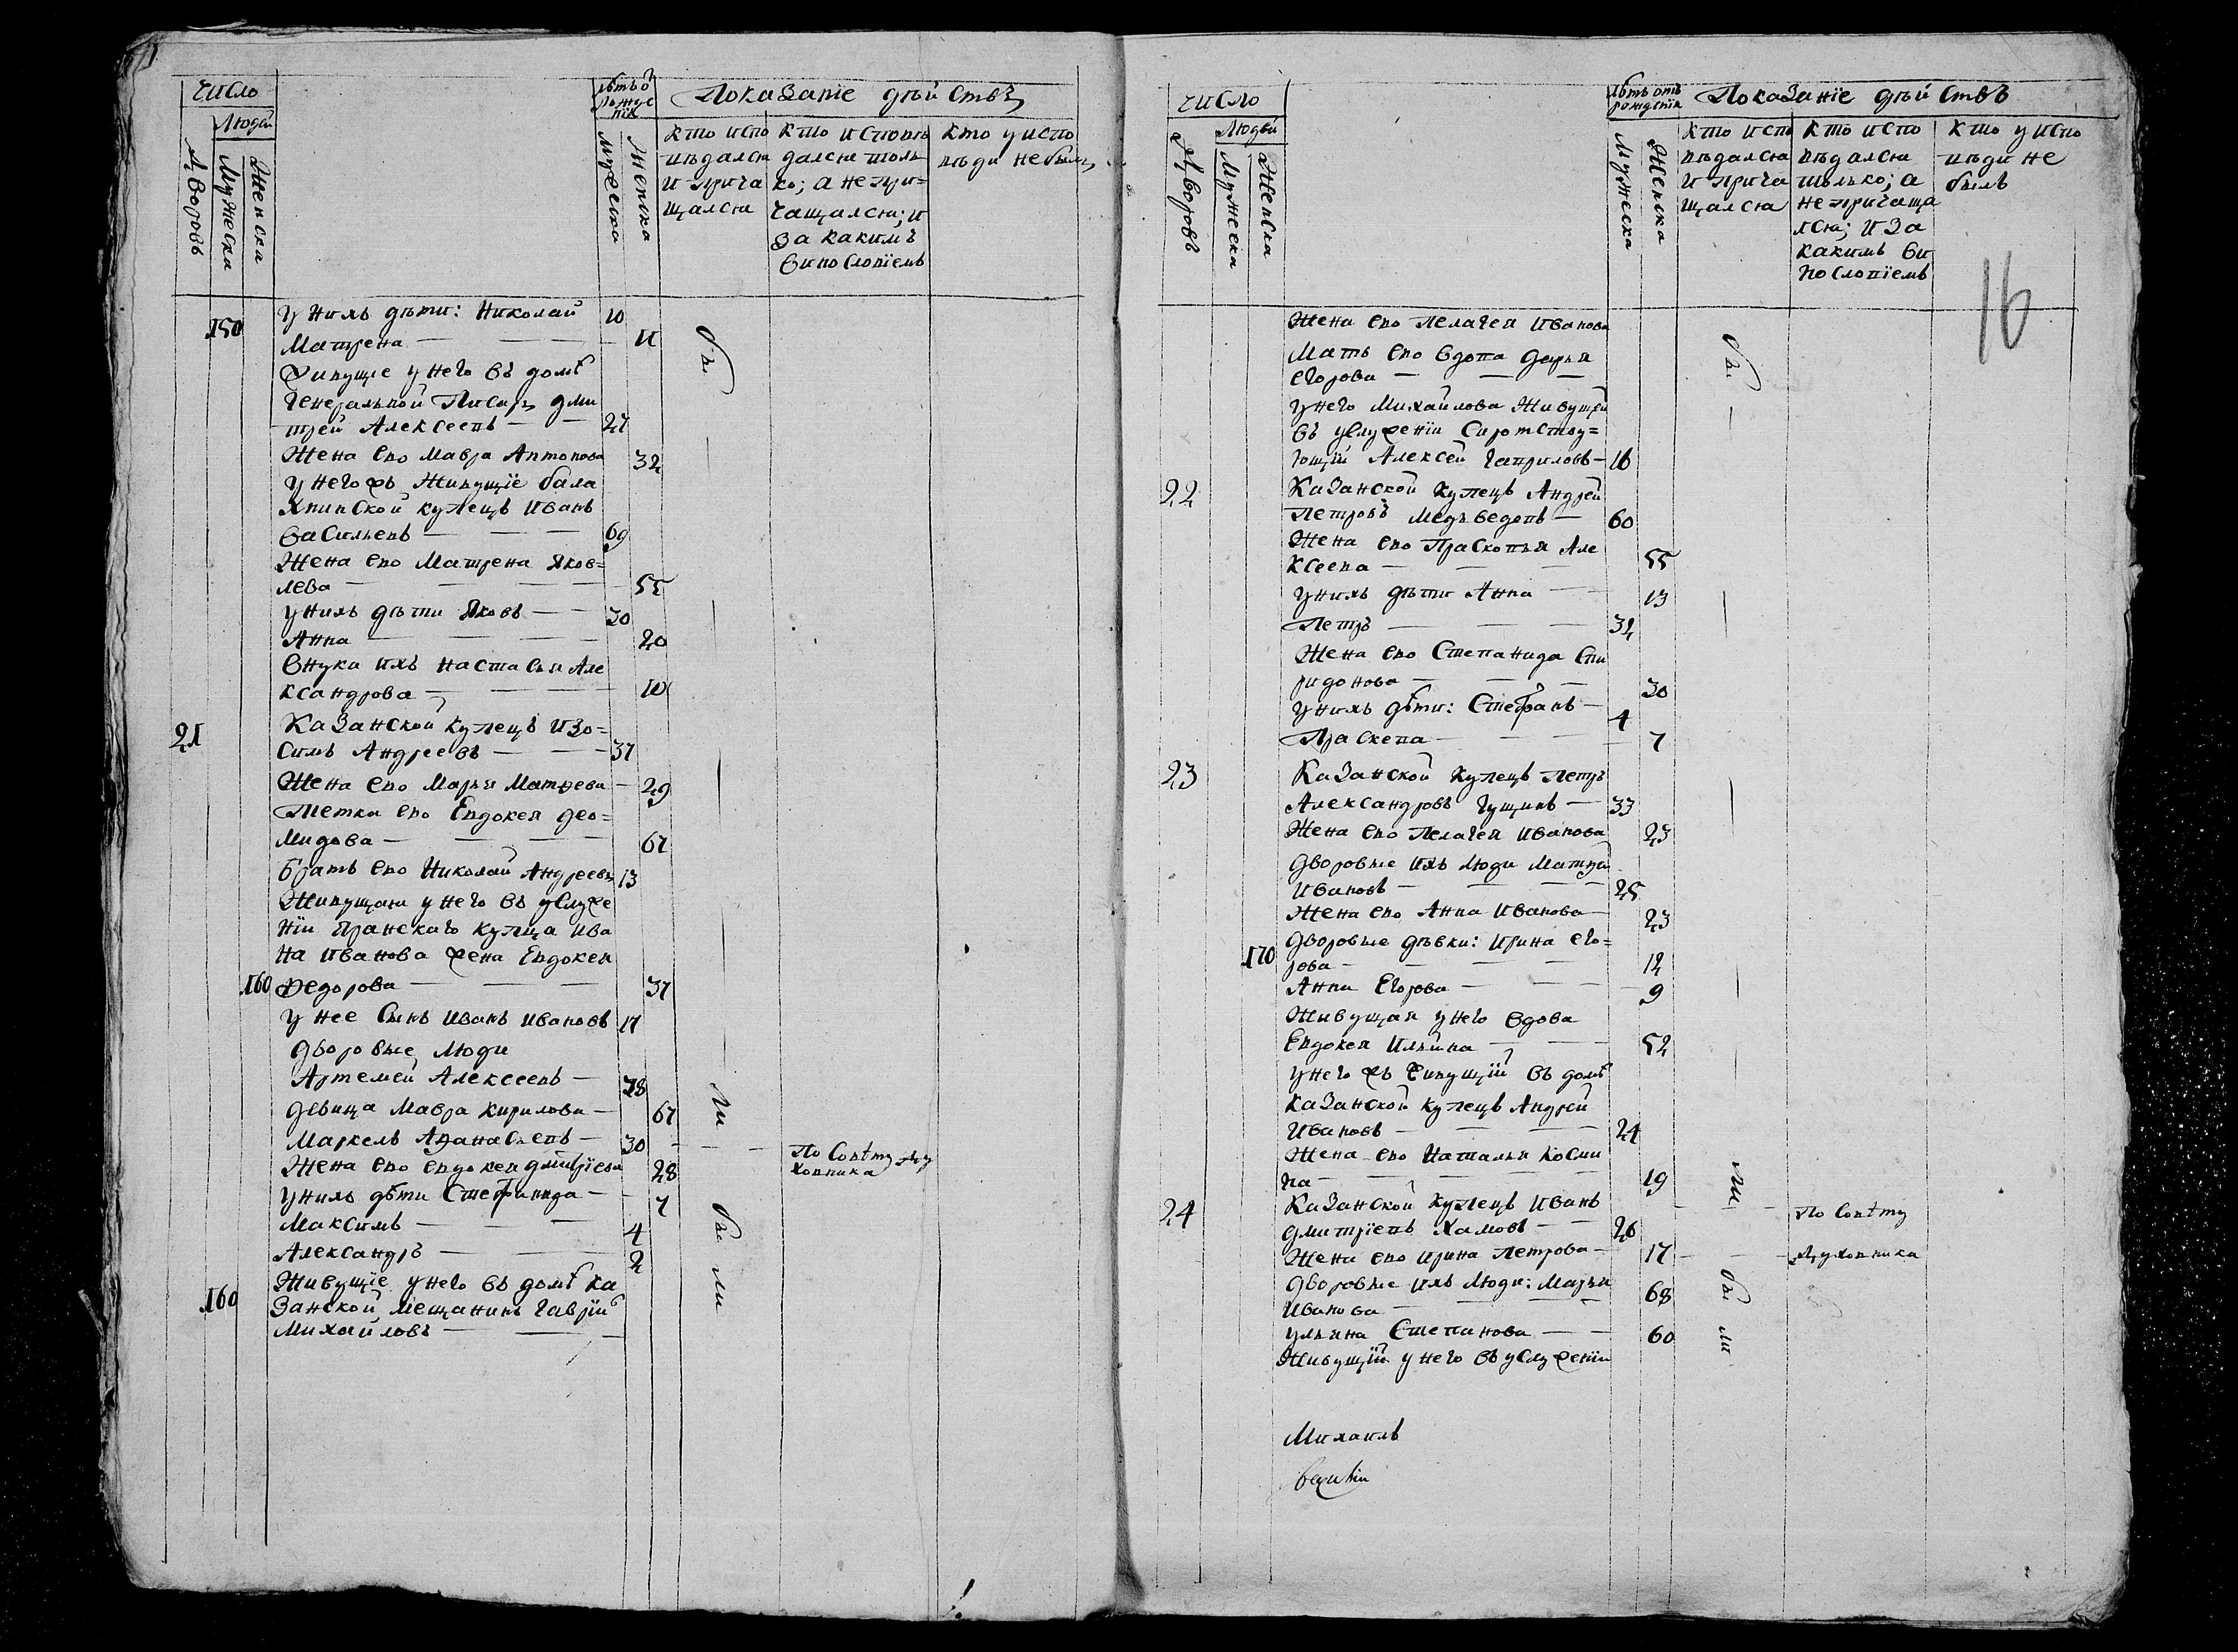 Число
Людей
Дворовъ
Мужеска
Женска
лѣтъ ѿ рожде
нїя
Мужеска
Женска
Показанїе дѣйствъ
кто испо
вѣдался
и прича
щался
кто исповѣ
дался толь
ко; а не при=
чащался; и
за какимъ
винословїемъ
кто у испо
вѣди не былъ
150
У нихъ дѣти: Николай 10
Матрена — — — 11
Живущїе у него въ домѣ
Генеральной Писарь Дми
трей Алексеевъ — — 27
Жена ево Мавра Антонова 32
У него жъ живущїе бала
хнинской купецъ Иванъ
Васильевъ — — — 69
Жена ево Матрена Яков=
лева — — — 55
У нихъ дѣти Яковъ — — 30
Анна — — — 20
Внука ихъ Настасья Але
ксандрова — — — 10
21
Казанской купецъ Изо=
симъ Андреевъ — — — 37
Жена ево Марья Матѳеева — 29
Тетка ево Евдокея Део=
мидова — — — 67
Братъ ево Николай Андреевъ 13
Живущая у него въ услуже
нїи Яранскаго купца Ива
на Иванова жена Евдокея
160 Ѳедорова — — — 37
У нее сынъ Иванъ Ивановъ 17
Дворовые люди
Артемей Алексеевъ — 38
Девица Мавра Кирилова — 67
Маркелъ Аѳанасьевъ — 30
Жена ево Евдокея Дмитрїева 28
По совѣту ду
ховника
У нихъ дѣти Стефанида — 7
Максимъ — — — 4
Александръ — — — 2
Живущїе у него въ домѣ Ка
160 занской мещанинъ Гаврїилъ
Михайловъ — —
бы
ли
бы
ли
Число
Людей
Дворовъ
Мужеска
Женска
лѣтъ отъ
рожденїя
Мужеска
Женска
Показанїе дѣйствъ
кто испо
вѣдался
и прича
щался
кто испо
вѣдался
только; а
не причаща
лся; и за
какимъ ви
нословїемъ
кто у испо
вѣди не
былъ
16
Жена ево Пелагея Иванова
Мать ево вдова Дарья
Егорова — — —
У него Михайлова живутъ
въ услуженїи сиротству=
ющїй Алексей Гавриловъ — 16
22
Казанской купецъ Андрей
Петровъ Медведевъ — 60
Жена ево Прасковья Але
ксеева — — — 55
У нихъ дѣти Анна — — 13
Петръ — — — 32
Жена ево Степанида Спи
ридонова — — — 30
У нихъ дѣти: Стефанъ — 4
Праскева — — — 7
23
Казанской купецъ Петръ
Александровъ Гущинъ — 33
Жена ево Пелагея Иванова 23
Дворовые ихъ люди Матвѣй
Ивановъ — — — 25
Жена ево Анна Иванова — 23
Дворовые дѣвки: Ирина Его=
170 рова — — — 12
Анна Егорова — — — 9
Живущая у него вдова
Евдокея Ильина — — 52
У него жъ живущїй въ домѣ
Казанской купецъ Андрей
Ивановъ — — — 24
Жена ево Наталья Косми
на — — — 19
24
Казанской купецъ Иванъ
Дмитрїевъ Хамовъ — — 26
По совѣту
Жена ево Ирина Петрова — 17
духовника
Дворовые ихъ люди: Марья
Иванова — — — 68
Ульяна Степанова — — 60
Живущїй у него въ услуженїи
бы
ли
бы
ли
Михаилъ